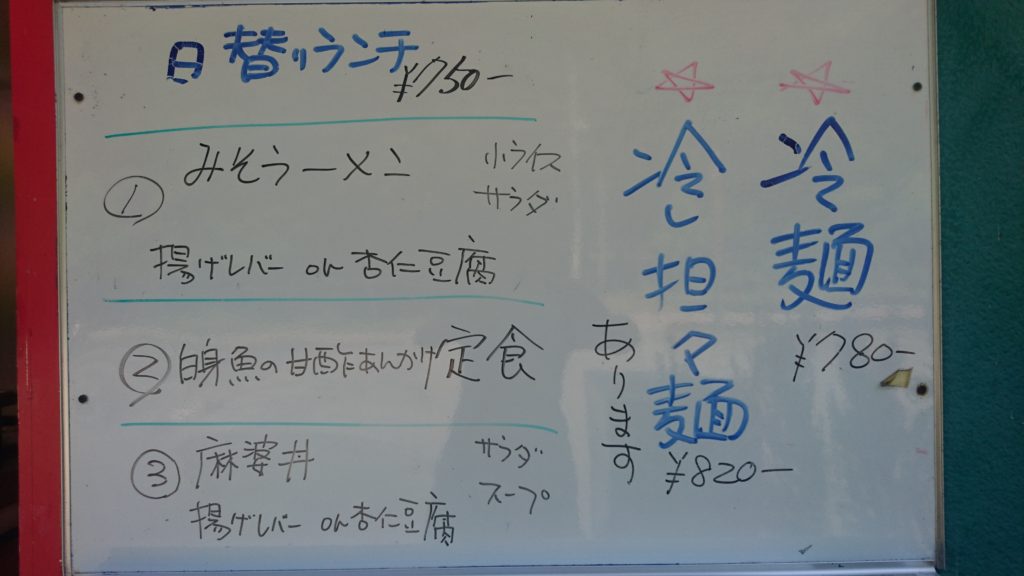 日替りランチ
¥750-
① みそラーメン
小ライス
サラダ
揚げレバー or 杏仁豆腐
② 白身魚の甘酢あんかけ定食
③ 麻婆丼
サラダ
スープ
揚げレバー or 杏仁豆腐
☆冷麺
¥780-
☆冷し担々麺
¥820-
あります